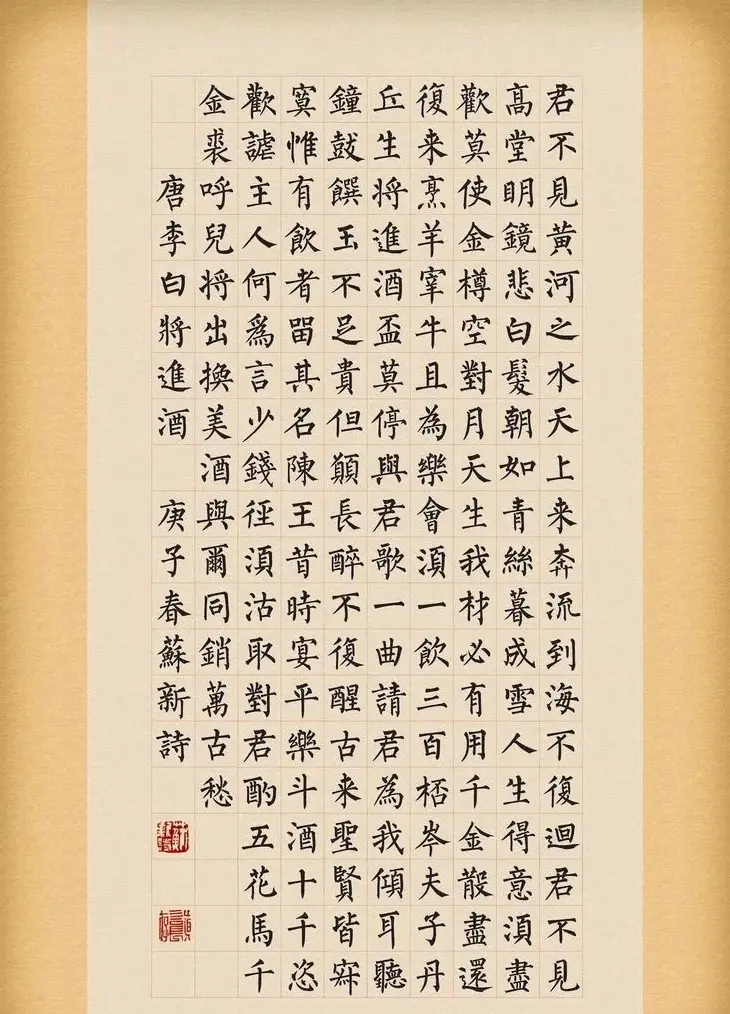 君不見黃河之水天上来奔流到海不復迴君不見
髙堂明鏡悲白髮朝如青絲暮成雪人生得意須盡
歡莫使金樽空對月天生我材必有用千金散盡還
復来烹羊宰牛且為樂會須一飲三百桮岑夫子丹
丘生將進酒盃莫停與君歌一曲請君為我傾耳聽
鐘鼓饌玉不足貴但願長醉不復醒古来聖賢皆寂
寞惟有飲者留其名陳王昔時宴平樂斗酒十千恣
歡謔主人何爲言少錢徑須沽取對君酌五花馬千
金裘呼兒将出換美酒與爾同銷萬古愁
唐李白將進酒 庚子春蘇新詩